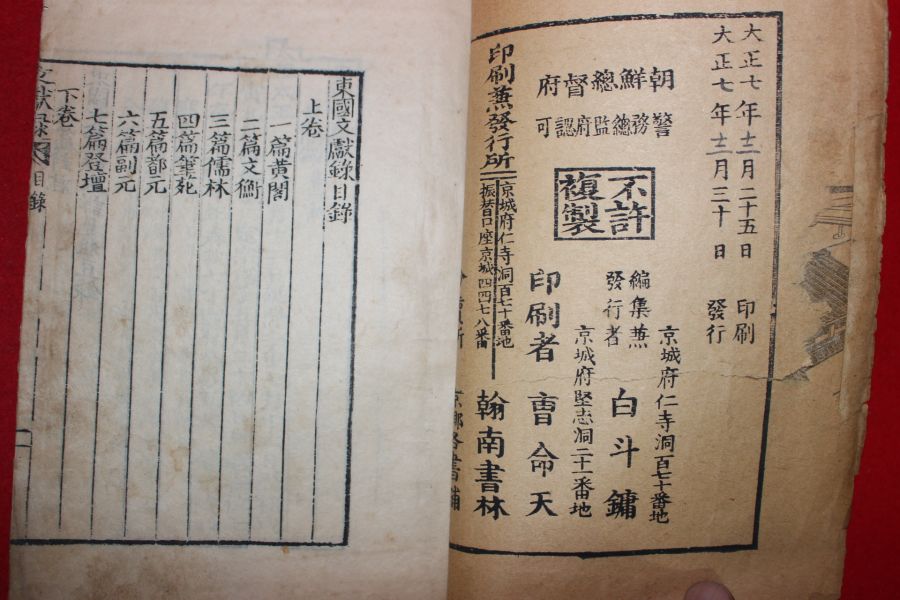 大正七年十二月二十五日 印刷
大正七年十二月三十日 發行
朝鮮總督府
警務總監府認可
不許
複製
京城府仁寺洞百七十番地
編集兼
發行者 白斗鏞
京城府堅志洞二十一番地
印刷者 曺命天
印刷兼發行所
京城府仁寺洞百七十番地
振替口座京城四四七八番
翰南書林
京都各書鋪
東國文獻錄目錄
上卷
一篇黃閣
二篇文衡
三篇儒林
四篇筆苑
五篇都元
六篇副元
七篇登壇
下卷
文獻錄 目錄